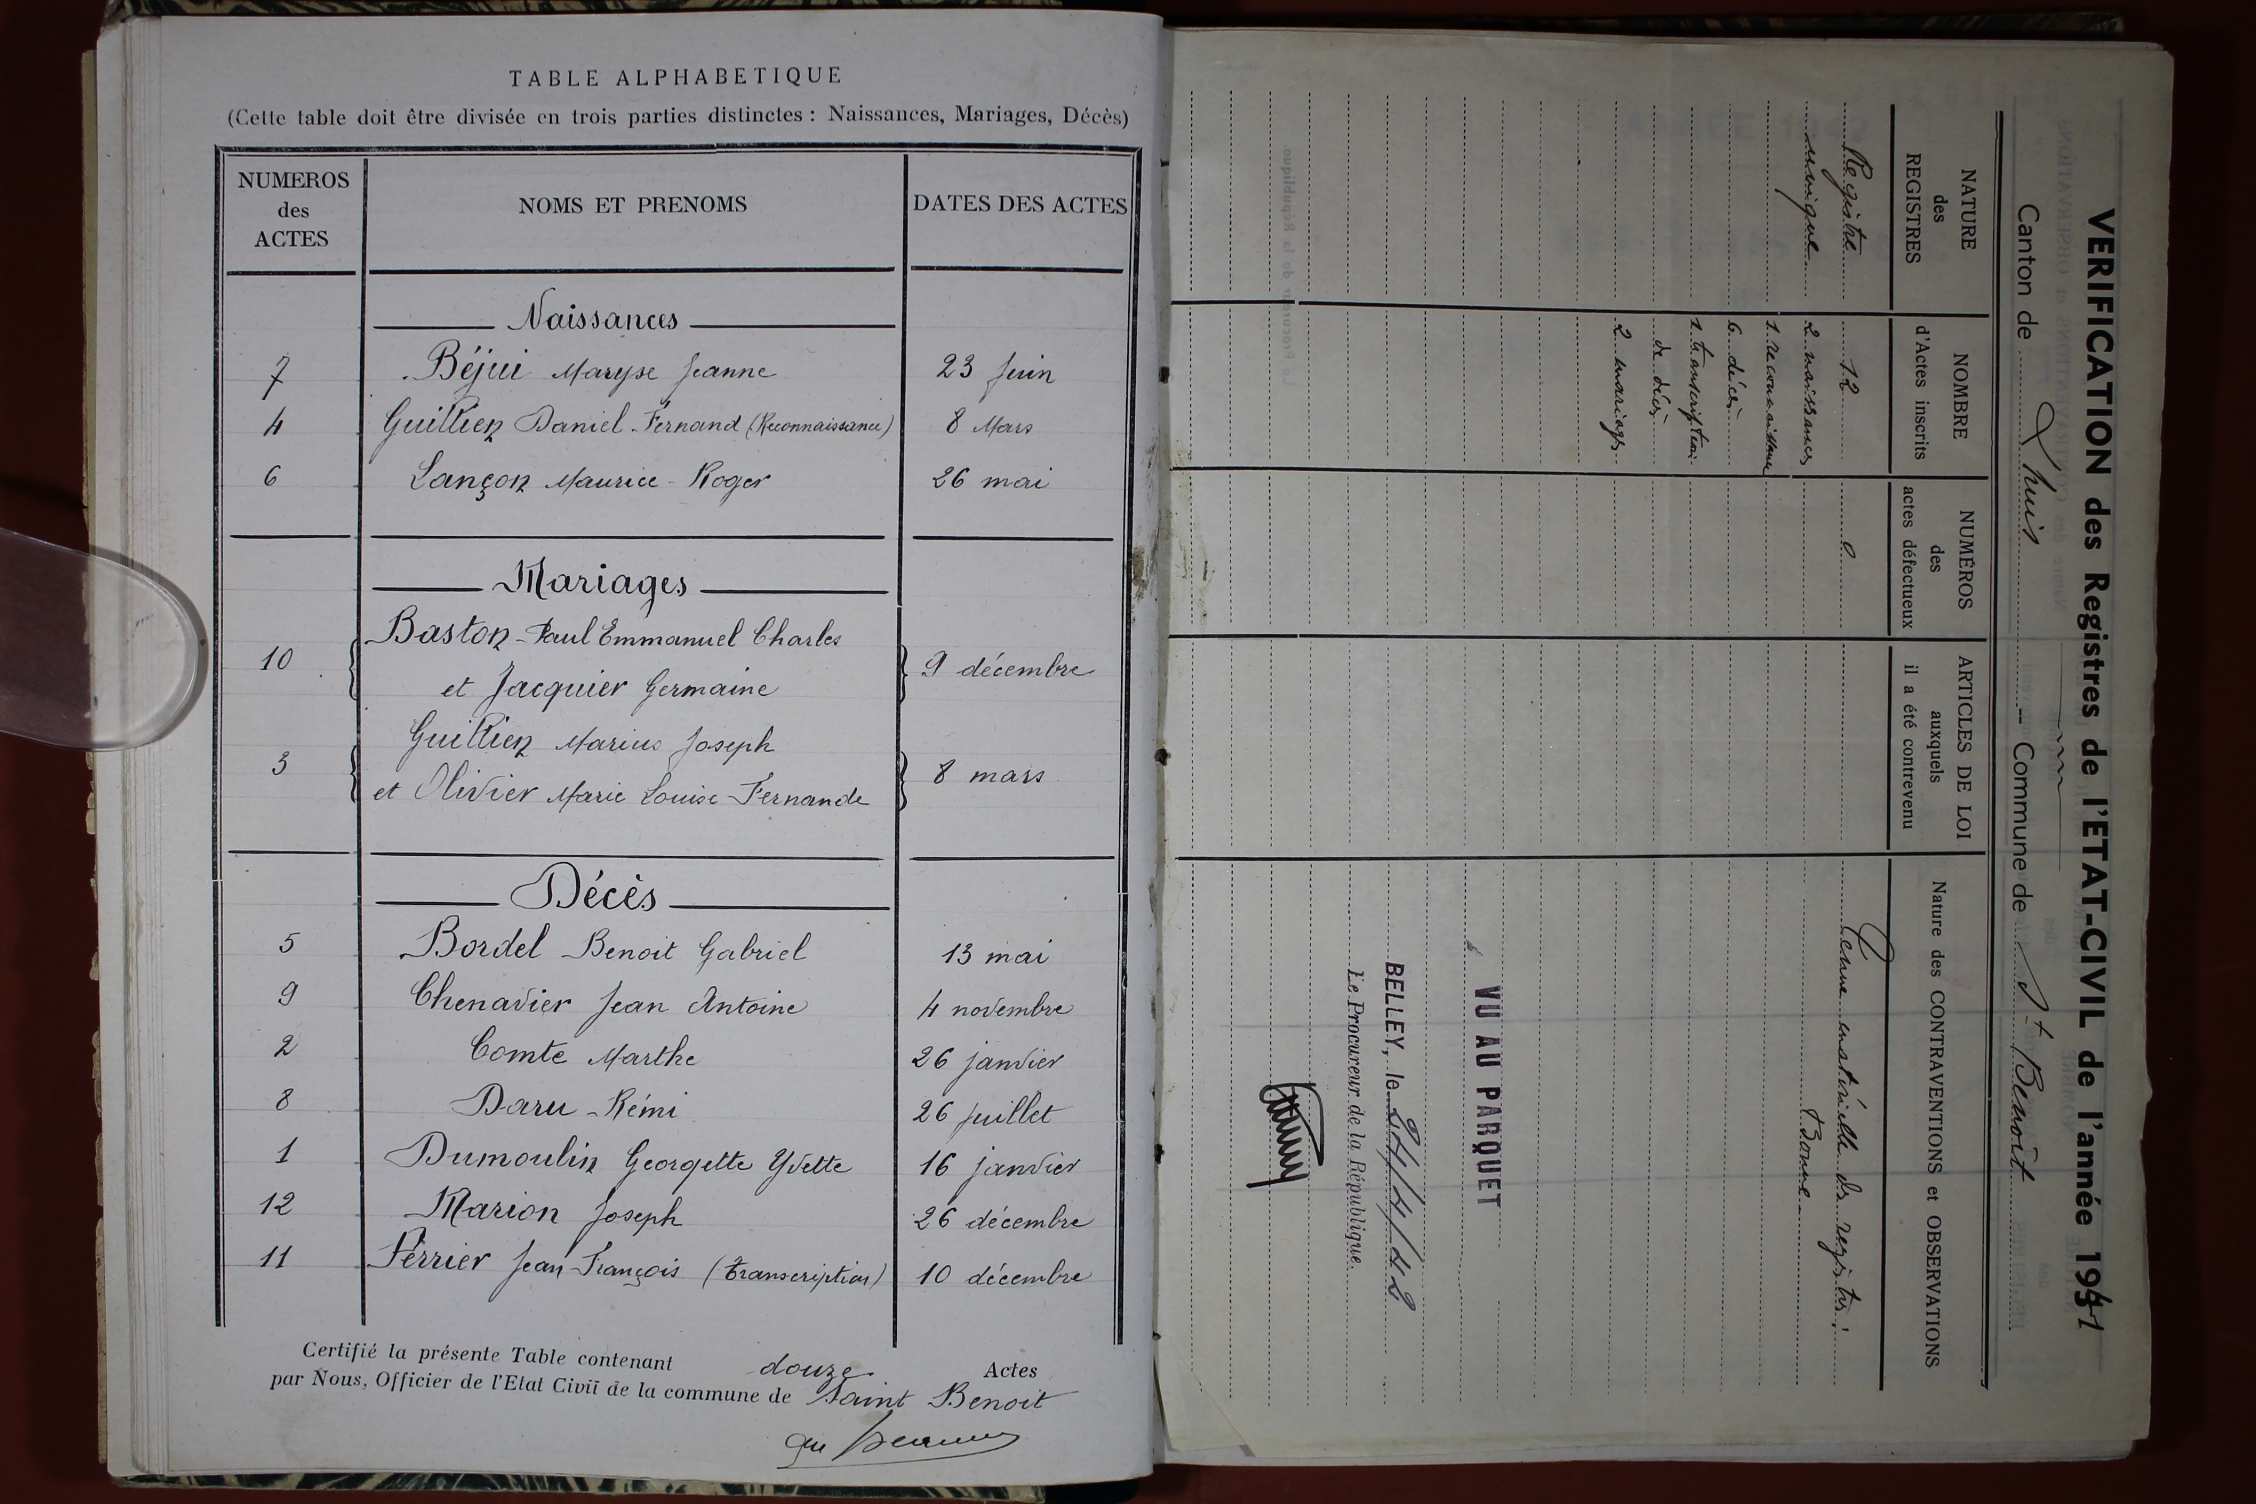 TABLE ALPHABETIQUE
(Cette table doit être divisée en trois parties distinctes : Naissances, Mariages, Décès)
NUMEROS des ACTES
NOMS ET PRENOMS
DATES DES ACTES
Naissances
7 Béjui Maryse Jeanne 23 Juin
4 Guillien Daniel Fernand (Reconnaissance) 8 Mars
6 Lançon Maurice Roger 26 mai
Mariages
Baston Paul Emmanuel Charles
10 9 décembre
et Jacquier Germaine
Guillien Marius Joseph
3 8 mars
et Olivier Marie Louise Fernande
Décès
5 Bordel Benoit Gabriel 13 mai
9 Chenavier Jean Antoine 4 novembre
2 Comte Marthe 26 janvier
8 Daru Rémi 26 Juillet
1 Dumoulin Georgette Yvette 16 janvier
12 Marion Joseph 26 décembre
11 Perrier Jean François (Transcription) 10 décembre
Certifié la présente Table contenant douze Actes
par Nous, Officier de l'Etat Civil de la commune de Saint Benoit
VERIFICATION des Registres de l'ETAT-CIVIL de l'année 1941
Canton de Lhuis -- Commune de St Benoit
NATURE des REGISTRES
NOMBRE d'Actes inscrits
NUMÉROS des actes défectueux
ARTICLES DE LOI auxquels il a été contrevenu
Nature des CONTRAVENTIONS et OBSERVATIONS
Registre 12 0 Tenue matérielle des registres :
unique 2 naissances Bonne
1 reconnaissance
6 décès
1 transcription
de décès
2 mariages
VU AU PARQUET
BELLEY, le 24/4/42
Le Procureur de la République.